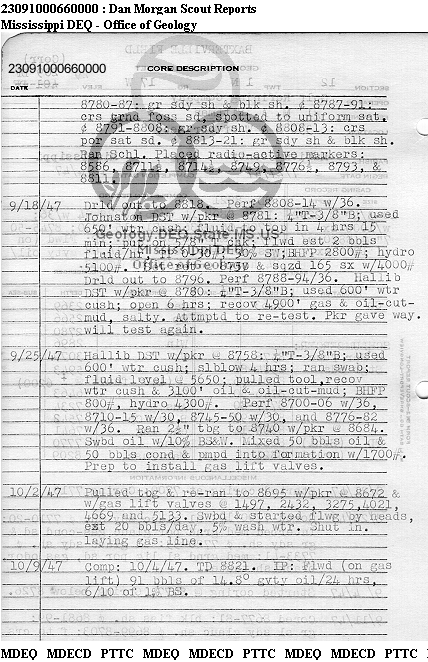 23091000660000 : Dan Morgan Scout Reports
Mississippi DEQ - Office of Geology
23091000660000
CORE DESCRIPTION
DATE
8780-87: gr sdy sh & blk sh. ¢ 8787-91:
crs grnd foss sd, spotted to uniform sat.
¢ 8791-8808: gr sdy sh. ¢ 8808-13: crs
por sat sd. ¢ 8813-21: gr sdy & blk sh.
Ran Schl. Placed radio-active markers:
8586, 8711½, 8714½, 8749, 8776½, 8793, &
8811.
9/18/47 Drld out to 8818. Perf 8808-14 w/36.
Johnston DST w/pkr @ 8781: ¼"T-3/8"B; used
650' wtr cush; fluid to top in 4 hrs 15
min; put on 5/8" T chk; flwd est 2 bbls
fluid/hr, 50% SW; BHFP 2800#; hydro
5100#. & sqzd 165 sx w/4000#
Drld out to 8796. Perf 8788-94/36. Hallib
DST w/pkr @ 8780: ¼"T-3/8"B; used 600' wtr
cush; open 6 hrs; recov 4900' gas & oil-cut-
mud, salty. Attmptd to re-test. Pkr gave way.
will test again.
9/25/47 Hallib DST w/pkr @ 8758: ¼"T-3/8"B; used
600' wtr cush; slblow 4 hrs; ran swab;
fluid level @ 5650; pulled tool, recov
wtr cush & 3100' oil & oil-cut-mud; BHFP
800#, hydro 4300#. Perf 8700-06 w/36,
8710-15 w/30, 8745-50 w/30, and 8776-82
w/36. Ran 2½" tbg to 8740 w/pkr @ 8684.
Swbd oil w/10% BS&W. Mixed 50 bbls oil &
50 bbls cond & pmpd into formation w/1700#.
Prep to install gas lift valves.
10/2/47 Pulled tbg & re-ran to 8695 w/pkr @ 8672 &
w/gas lift valves @ 1497, 2432, 3275, 4021,
4669 and 5133. Swbd & started flwg by heads,
ext 20 bbls/day, 5% wash wtr. Shut in.
laying gas line.
10/9/47 Comp: 10/4/47. TD 8821. IP: Flwd (on gas
lift) 91 bbls of 14.8° gvty oil/24 hrs,
6/10 of 1% BS.
Geology.DEQ.State.MS.US
Mississippi DEQ
Office of Geology
MDEQ MDECD PTTC MDEQ MDECD PTTC MDEQ MDECD PTTC